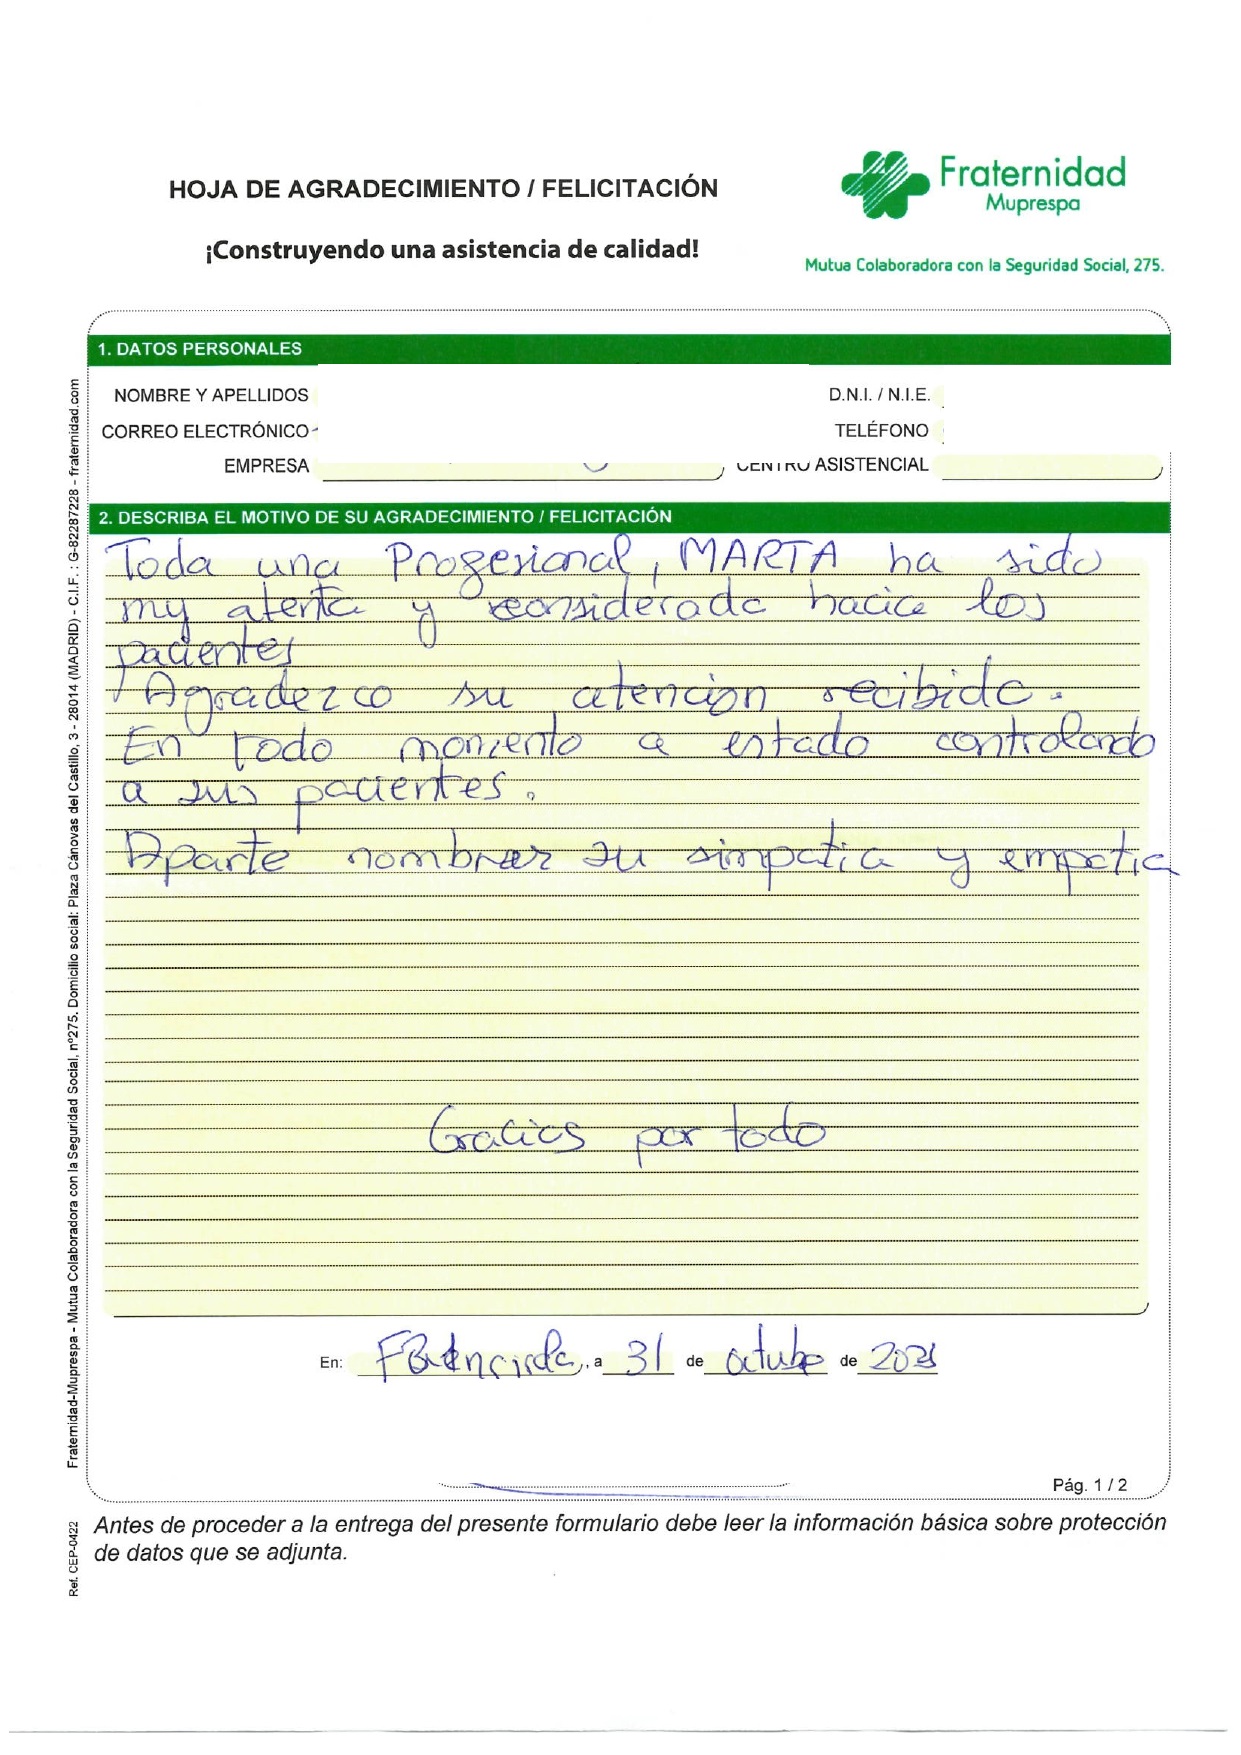 HOJA DE AGRADECIMIENTO / FELICITACIÓN
¡Construyendo una asistencia de calidad!
Fraternidad
Muprespa
Mutua Colaboradora con la Seguridad Social, 275.
1. DATOS PERSONALES
NOMBRE Y APELLIDOS
D.N.I. / N.I.E.
CORREO ELECTRÓNICO
TELÉFONO
EMPRESA
CENTRO ASISTENCIAL
2. DESCRIBA EL MOTIVO DE SU AGRADECIMIENTO / FELICITACIÓN
Toda una Profesional, MARTA ha sido
my atenta y considerada hacia los
pacientes
Agradezco su atencion recibida.
En todo momento a estado controlando
a sus pacientes.
Aparte nombrar su simpatia y empatia
Gracias por todo
En: , a 31 de octubre de
Pág. 1 / 2
Antes de proceder a la entrega del presente formulario debe leer la información básica sobre protección
de datos que se adjunta.
Fraternidad-Muprespa - Mutua Colaboradora con la Seguridad Social, nº275. Domicilio social: Plaza Cánovas del Castillo, 3 - 28014 (MADRID) - C.I.F. : G-82287228 - fraternidad.com
Ref. CEP-0422